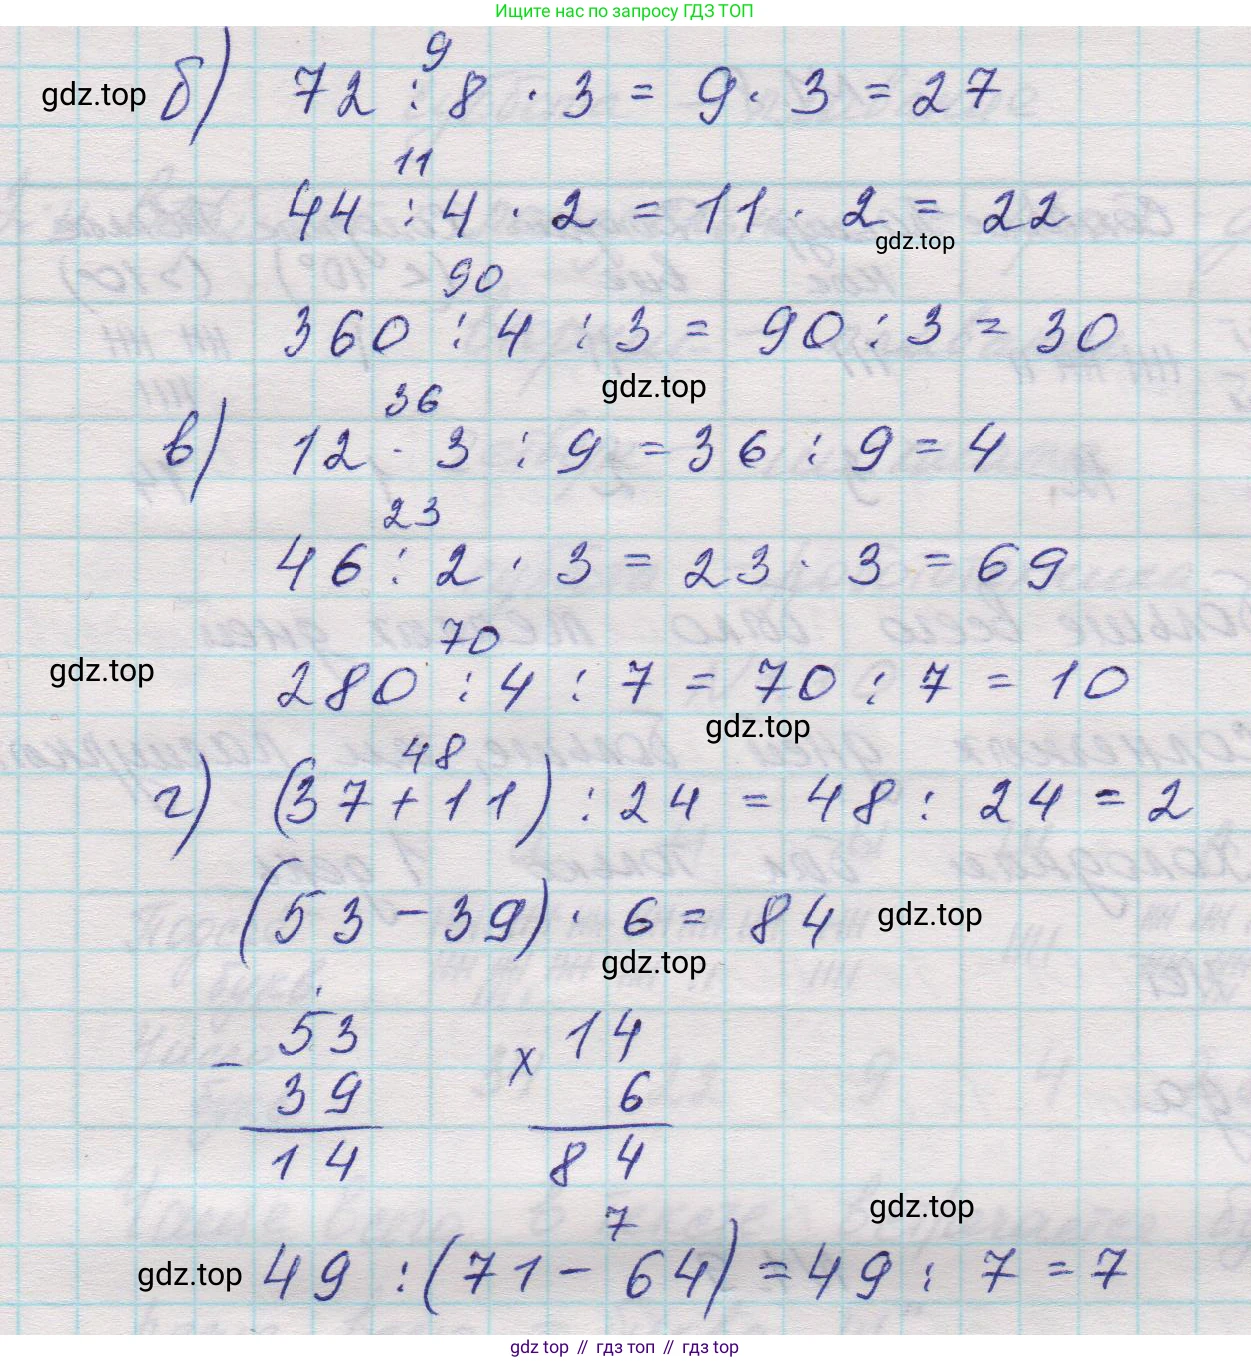 Ищите нас по запросу ГДЗ ТОП
9
gdz.top б) 72 : 8 · 3 = 9 · 3 = 27
11
44 : 4 · 2 = 11 · 2 = 22
gdz.top
90
360 : 4 : 3 = 90 : 3 = 30
gdz.top
36
в) 12 · 3 : 9 = 36 : 9 = 4
23
46 : 2 · 3 = 23 · 3 = 69
70
gdz.top 280 : 4 : 7 = 70 : 7 = 10
gdz.top
48
г) (37 + 11) : 24 = 48 : 24 = 2
(53 - 39) · 6 = 84 gdz.top
gdz.top
53 14
- ×
39 6
14 84
gdz.top
7
gdz.top 49 : (71 - 64) = 49 : 7 = 7
gdz top // гдз топ // gdz top